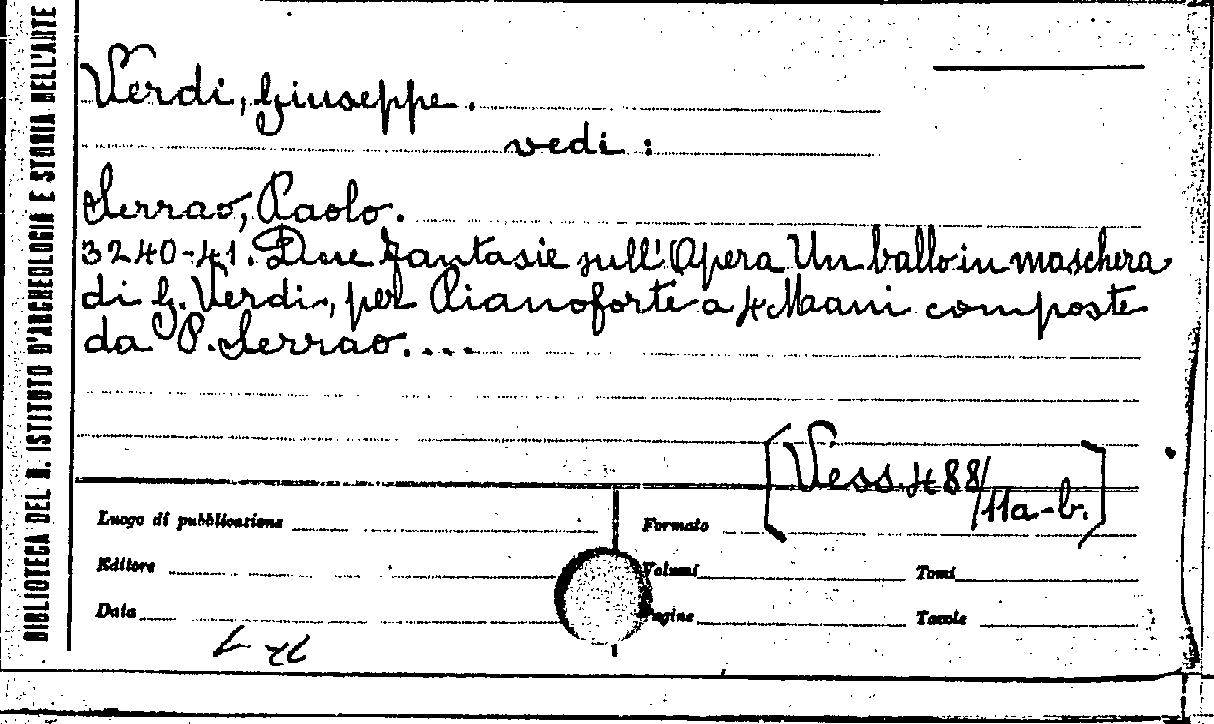 BIBLIOTECA DEL R. ISTITUTO D'ARCHEOLOGIA E STORIA DELL'ARTE
Verdi, Giuseppe.
vedi :
Serrao, Paolo.
3240-41. Due fantasie sull'Opera Un ballo in maschera
di G. Verdi, per Pianoforte a 4 Mani composte
da P. Serrao....
[Vess. 488/11a-b.]
Luogo di pubblicazione
Formato
Editore
Volumi
Tomi
Data
Pagine
Tavole